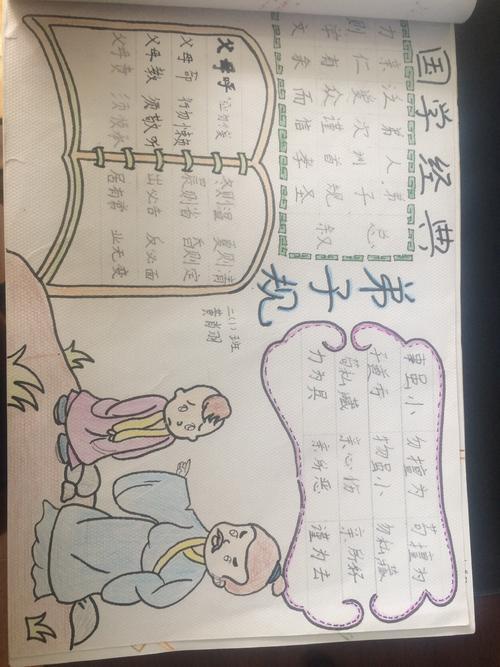 国学经典
总叙
弟子规圣
人训首孝
弟次谨信
泛爱众而
亲仁有余
力则学文
弟子规
父母呼 应勿缓
父母命 行勿懒
父母教 须敬听
父母责 须顺承
冬则温 夏则凊
晨则省 昏则定
出必告 反必面
居有常 业无变
事虽小 勿擅为 苟擅为
子道亏 物虽小 勿私藏
苟私藏 亲心伤 亲所好
力为具 亲所恶 谨为去
二(1)班